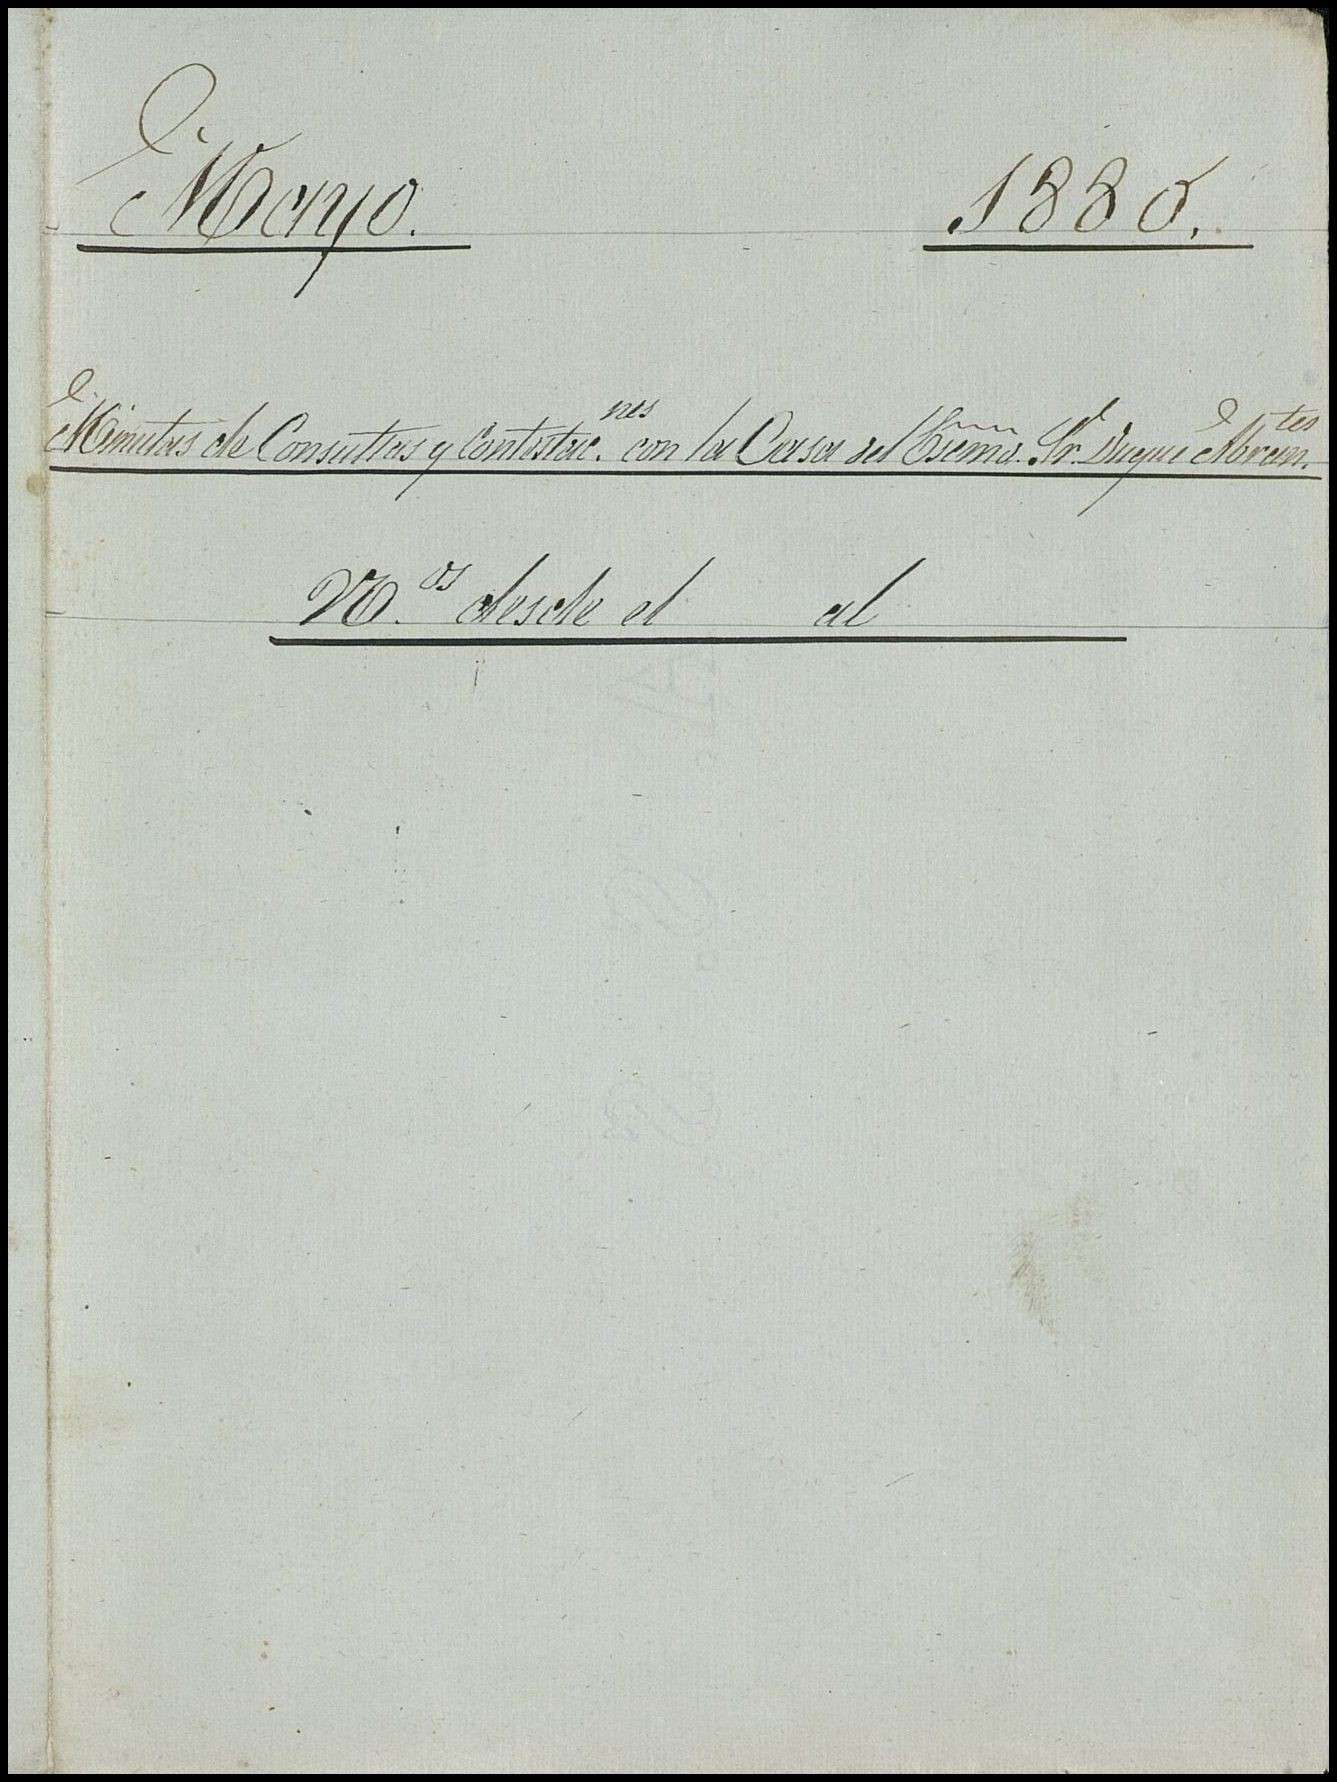 Mayo. 1880.
Minutas de Consultas y Contestac.nes con la Casa del Escmo. Sr. Duque Abran.tes
N.os desde el al